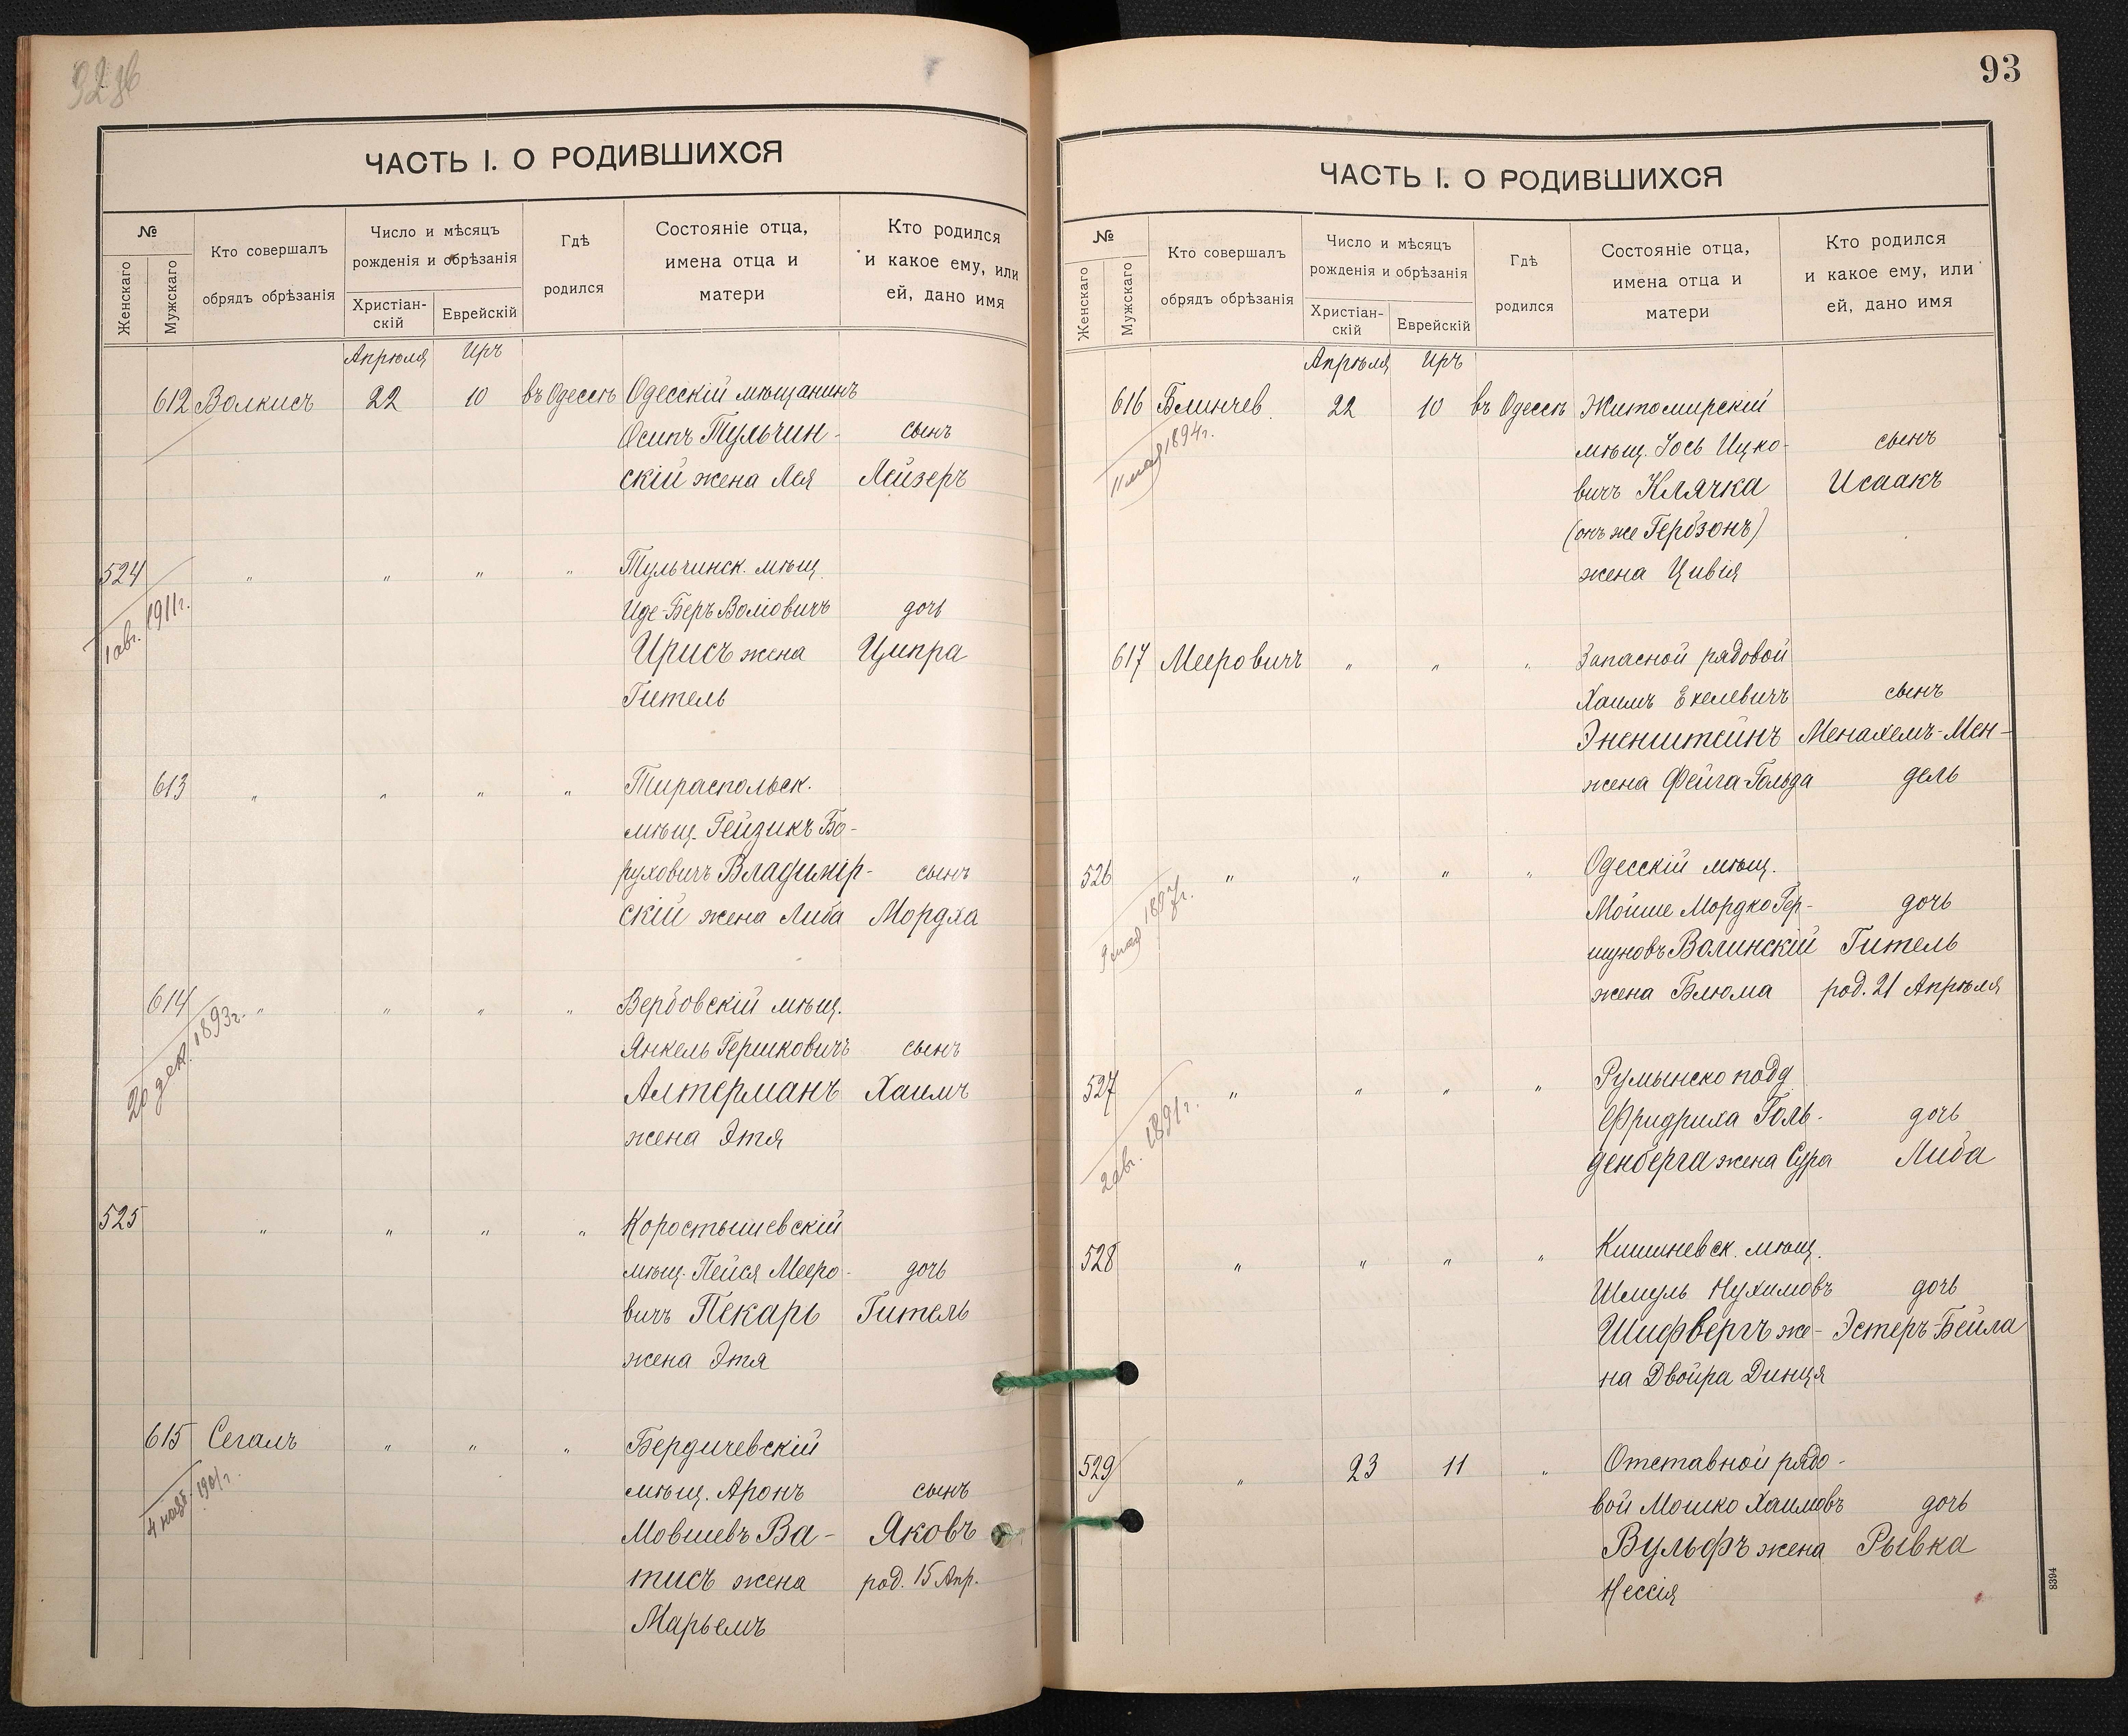 92 об
ЧАСТЬ I. О РОДИВШИХСЯ
№
Женскаго
Мужскаго
Кто совершалъ
обрядъ обрѣзанія
Число и мѣсяцъ
рожденія и обрѣзанія
Христіан-
скій
Еврейскій
Гдѣ
родился
Состояніе отца,
имена отца и
матери
Кто родился
и какое ему, или
ей, дано имя
Апрѣля Иръ
612 Волкисъ 22 10 въ Одессѣ Одесскій мѣщанинъ
Осипъ Тульчин- сынъ
скій жена Лея Лейзеръ
524 " " " " Тульчинск. мѣщ.
1 авг. 1911 г.
Иде-Беръ Воліовичъ дочь
Ирисъ жена Ципра
Гитель
613 " " " " Тираспольск.
мѣщ. Гейзикъ Бо-
руховичъ Владимір- сынъ
скій жена Либа Мордха
614 " " " " Вербовскій мѣщ.
20 дек. 1893 г.
Янкель Гершковичъ сынъ
Алтерманъ Хаимъ
жена Этя
525 " " " " Коростышевскій
мѣщ. Пейся Мееро- дочь
вичъ Пекарь Гитель
жена Этя
615 Сегалъ " " " Бердичевскій
4 нояб. 1901 г.
мѣщ. Аронъ сынъ
Мовшевъ Ва- Яковъ
тисъ жена род. 15 Апр.
Марьемъ
93
ЧАСТЬ I. О РОДИВШИХСЯ
№
Женскаго
Мужскаго
Кто совершалъ
обрядъ обрѣзанія
Число и мѣсяцъ
рожденія и обрѣзанія
Христіан-
скій
Еврейскій
Гдѣ
родился
Состояніе отца,
имена отца и
матери
Кто родился
и какое ему, или
ей, дано имя
Апрѣля Иръ
616 Блинчев. 22 10 въ Одессѣ Житомирскій
11 мая 1894 г.
мѣщ. Іось Ицко- сынъ
вичъ Клячка Исаакъ
(онъ же Гербзонъ)
жена Цивія
617 Мееровичъ " " " Запасной рядовой
Хаимъ Екелевичъ сынъ
Эненштейнъ Менахемъ-Мен-
жена Фейга-Гольда дель
526 " " " " Одесскій мѣщ.
9 мая г.
Мойше Мордко Гер- дочь
шуновъ Волинскій Гитель
жена Блюма род. 21 Апрѣля
527 " " " " Румынско подд
2 авг. 1891 г.
Фридриха Голь- дочь
денберга жена Сура Либа
528 " " " " Кишиневск. мѣщ.
Шмуль Нухимовъ дочь
Шифвергъ же- Эстеръ-Бейла
на Двойра Динця
529 " 23 11 " Отставной рядо-
вой Мошко Хаимовъ дочь
Вульфъ жена Рывка
Нессія
8394